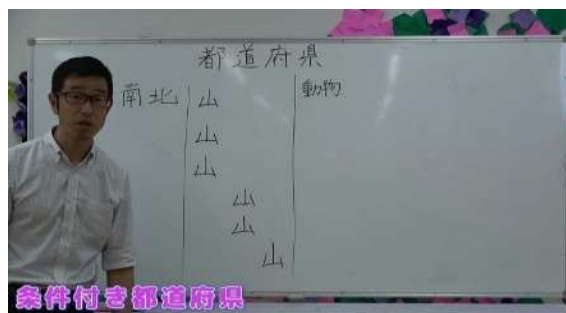 都道府県
南北 山 動物
山
山
山
山
山
条件付き都道府県